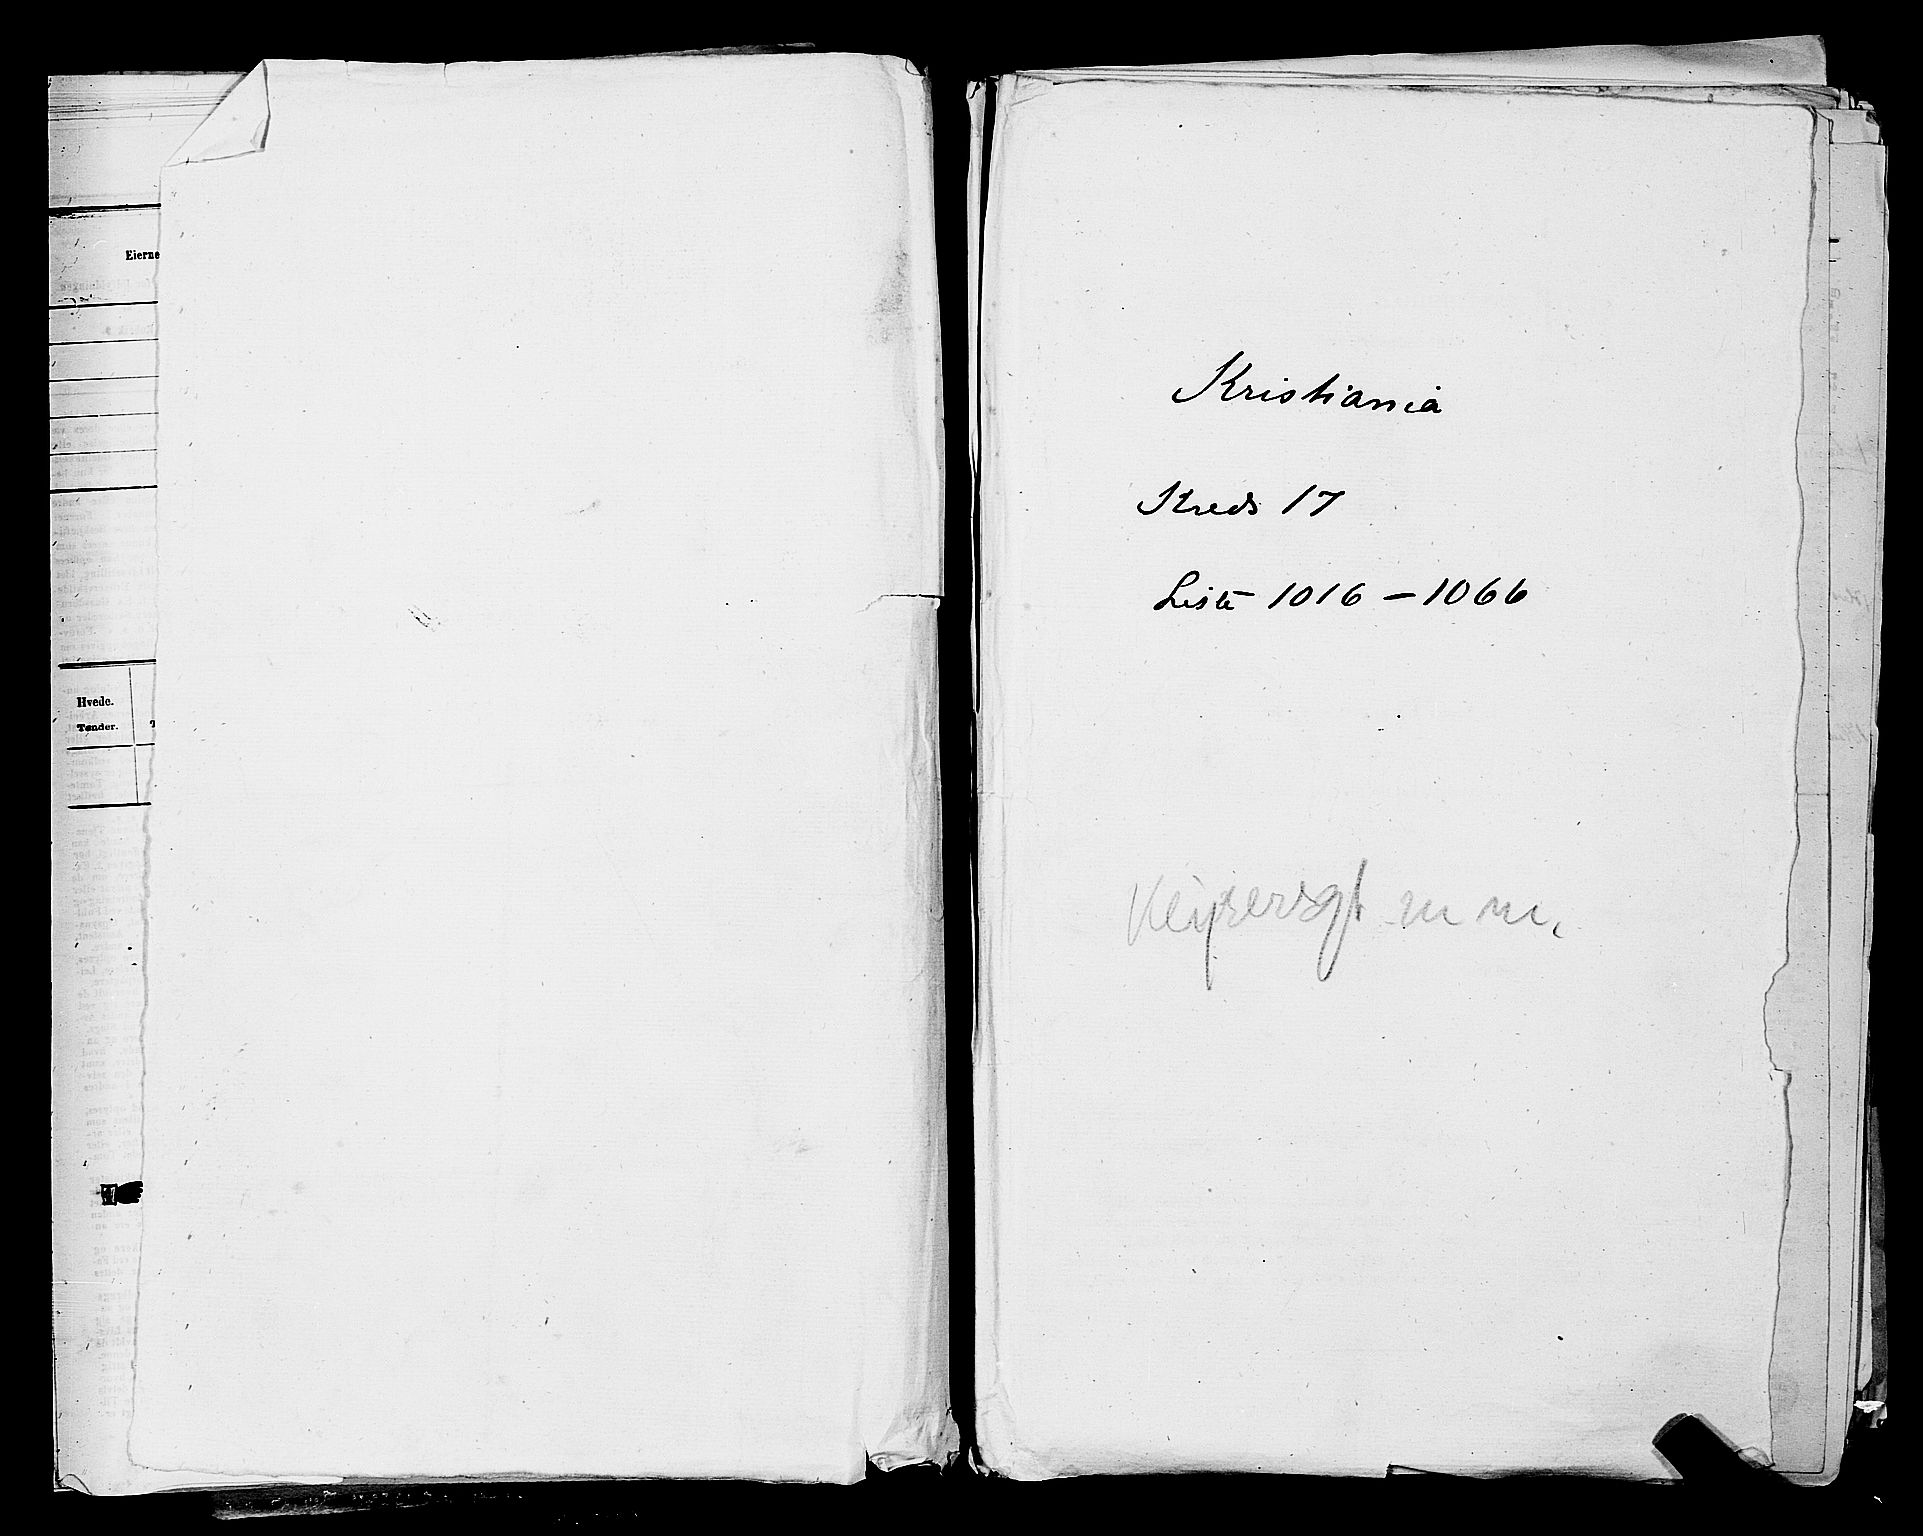 Eierne
Hvede.
Tønder.
Kristiania
Kreds 17
Liste 1016 – 1066
Keysersgt m m.